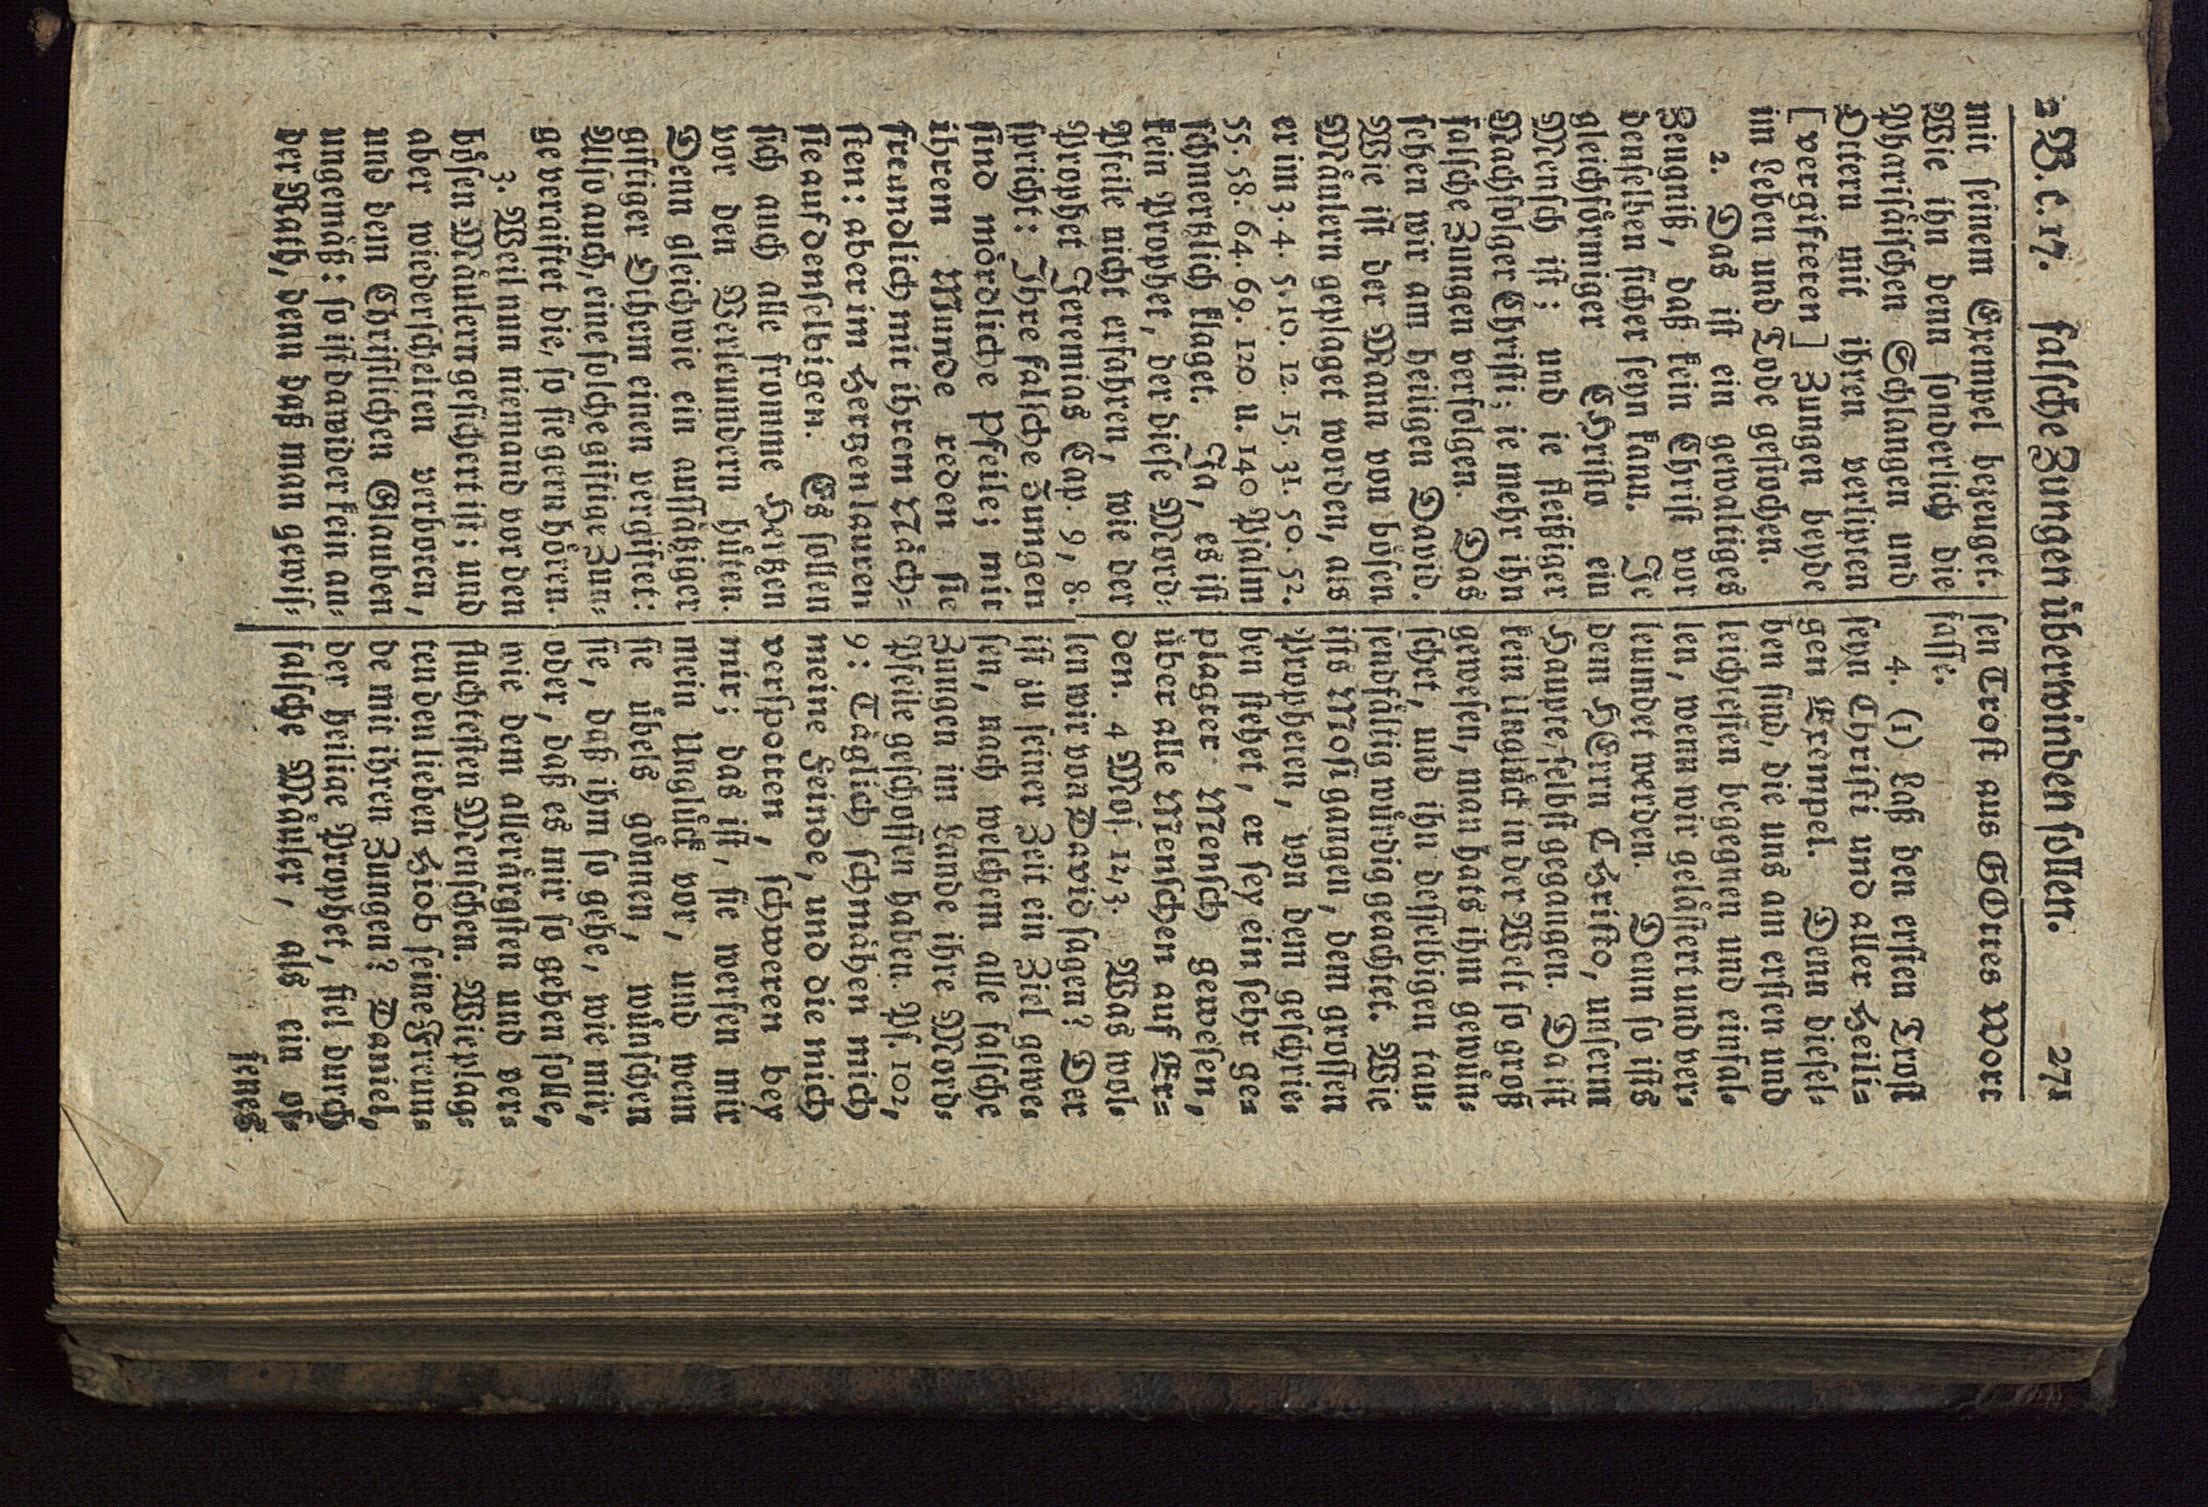 2 B. c. 17. falsche Zungen überwinden sollen. 271
mit seinem Exempel bezeuget.
Wie ihn denn sonderlich die
Pharisäischen Schlangen und
Ottern mit ihren verlipten
[vergifteten] Zungen beyde
im Leben und Tode gestochen.
2. Das ist ein gewaltiges
Zeugniß, daß kein Christ vor
denselben sicher seyn kann. Je
gleichförmiger CHristo ein
Mensch ist; und ie fleißiger
Nachfolger Christi; ie mehr ihn
falsche Zungen verfolgen. Das
sehen wir am heiligen David.
Wie ist der Mann von bösen
Mäulern geplaget worden, als
er im 3. 4. 5. 10. 12. 15. 31. 50. 52.
55. 58. 64. 69. 120 u. 140 Psalm
schmerzlich klaget. Ja, es ist
kein Prophet, der diese Mord-
Pfeile nicht erfahren, wie der
Prophet Jeremias Cap. 9, 8.
spricht: Ihre falsche Zungen
sind mördliche Pfeile; mit
ihrem Munde reden sie
freundlich mit ihrem Näch-
sten: aber im Herzen lauren
sie auf denselbigen. Es sollen
sich auch alle fromme Herzen
vor den Verleumdern hüten.
Denn gleichwie ein aussätziger
giftiger Athem einen vergiftet:
Also auch, eine solche giftige Zun-
ge vergiftet die, so sie gern hören.
3. Weil nun niemand vor den
bösen Mäulern gesichert ist; und
aber wiederschelten verboten,
und dem Christlichen Glauben
ungemäß: so ist dawider kein an-
der Rath, denn daß man gewis-
sen Trost aus GOttes Wort
fasse.
4. (1) Laß den ersten Trost
seyn Christi und aller Heili-
gen Exempel. Denn diesel-
ben sind, die uns am ersten und
leichtesten begegnen und einfal-
len, wenn wir gelästert und ver-
leumdet werden. Denn so ists
dem HErrn CHristo, unserm
Haupte, selbst gegangen. Da ist
kein Unglück in der Welt so groß
gewesen, man hats ihm gewün-
schet, und ihn desselbigen tau-
sendfältig würdig geachtet. Wie
ists Mosi gangen, dem grossen
Propheten, von dem geschrie-
ben stehet, er sey ein sehr ge-
plagter Mensch gewesen,
über alle Menschen auf Er-
den. 4 Mos. 12, 3. Was wol-
len wir von David sagen? Der
ist zu seiner Zeit ein Ziel gewe-
sen, nach welchem alle falsche
Zungen im Lande ihre Mord-
Pfeile geschossen haben. Ps. 102,
9: Täglich schmähen mich
meine Feinde, und die mich
verspotten, schweren bey
mir; das ist, sie werfen mir
mein Unglück vor, und wem
sie übels gönnen, wünschen
sie, daß ihm so gehe, wie mir,
oder, daß es mir so gehen solle,
wie dem allerärgsten und ver-
fluchtesten Menschen. Wie plag-
ten den lieben Hiob seine Freun-
de mit ihren Zungen? Daniel,
der heilige Prophet, fiel durch
falsche Mäuler, als ein of-
fenes